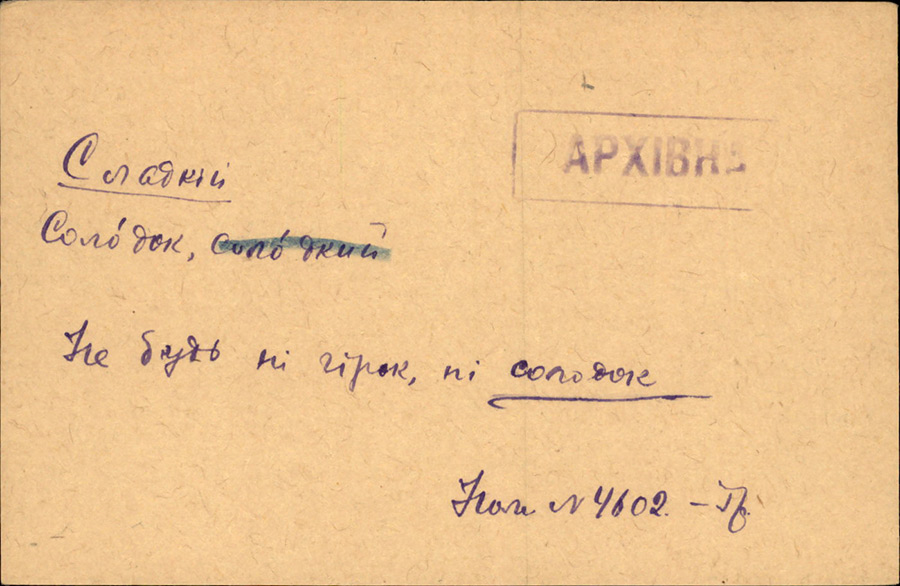 АРХІВНЕ
Сладкій
Соло́док, соло́дкий
Не будь ні гірок, ні солодок
Ном N 4602. – Пр.